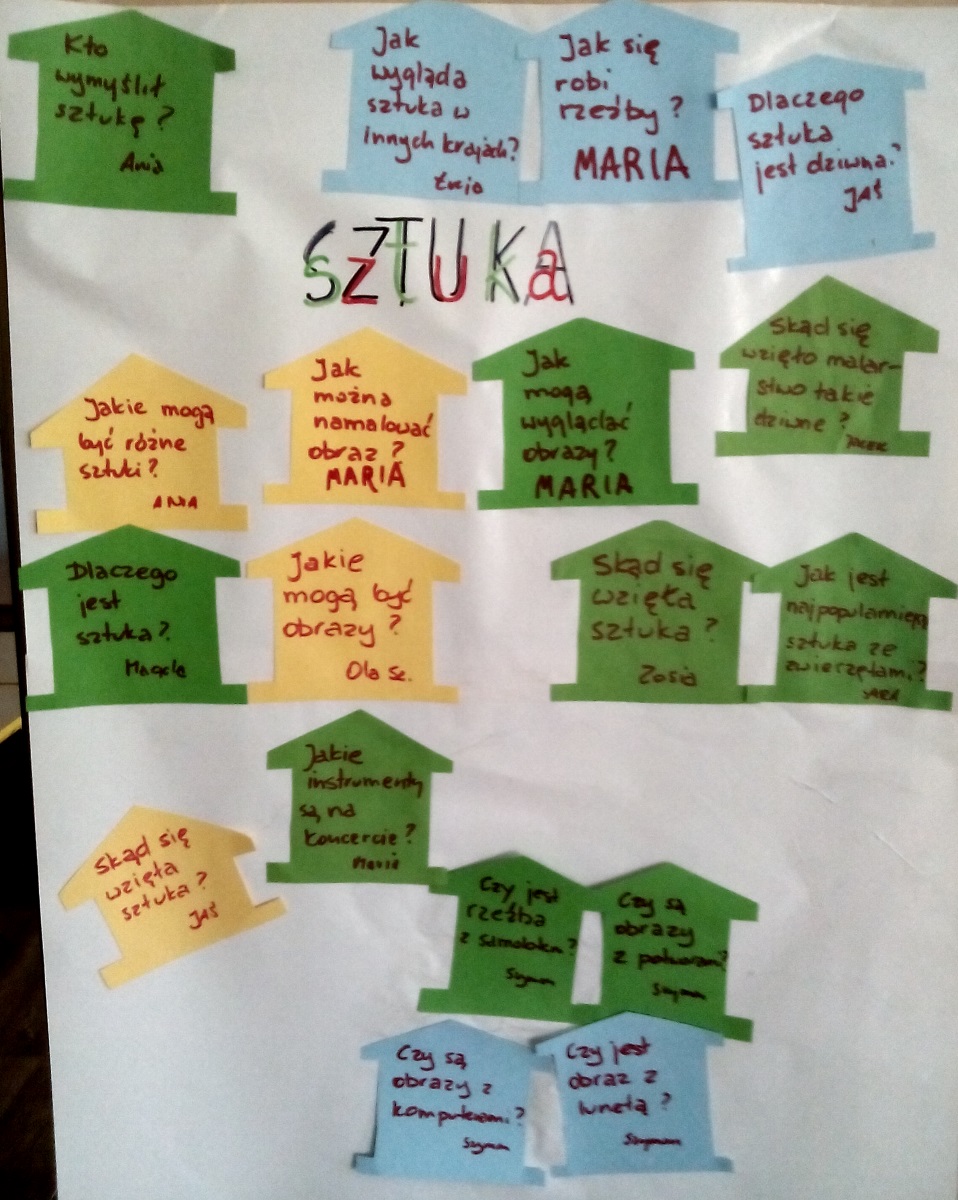 Kto
wymyślił
sztukę?
Ania
Jak
wygląda
sztuka w
innych krajach?
Łucja
Jak się
robi
rzeźby?
MARIA
Dlaczego
sztuka
jest dziwna?
JAŚ
SZTUKA
Jakie mogą
być różne
sztuki?
ANIA
Jak
można
namalować
obraz?
MARIA
Jak
mogą
wyglądać
obrazy?
MARIA
Skąd się
wzięło malar-
stwo takie
dziwne?
JACEK
Dlaczego
jest
sztuka?
Magda
Jakie
mogą być
obrazy?
Ola Sz.
Skąd się
wzięła
sztuka?
Zosia
Jak jest
najpopularniejsza
sztuka ze
zwierzętami?
SARA
Jakie
instrumenty
są na
koncercie?
Maria
Skąd się
wzięła
sztuka?
JAŚ
Czy jest
rzeźba
z samolotem?
Szymon
Czy są
obrazy
z potworami?
Szymon
Czy są
obrazy z
komputerami?
Szymon
Czy jest
obraz z
lunetą?
Szymon